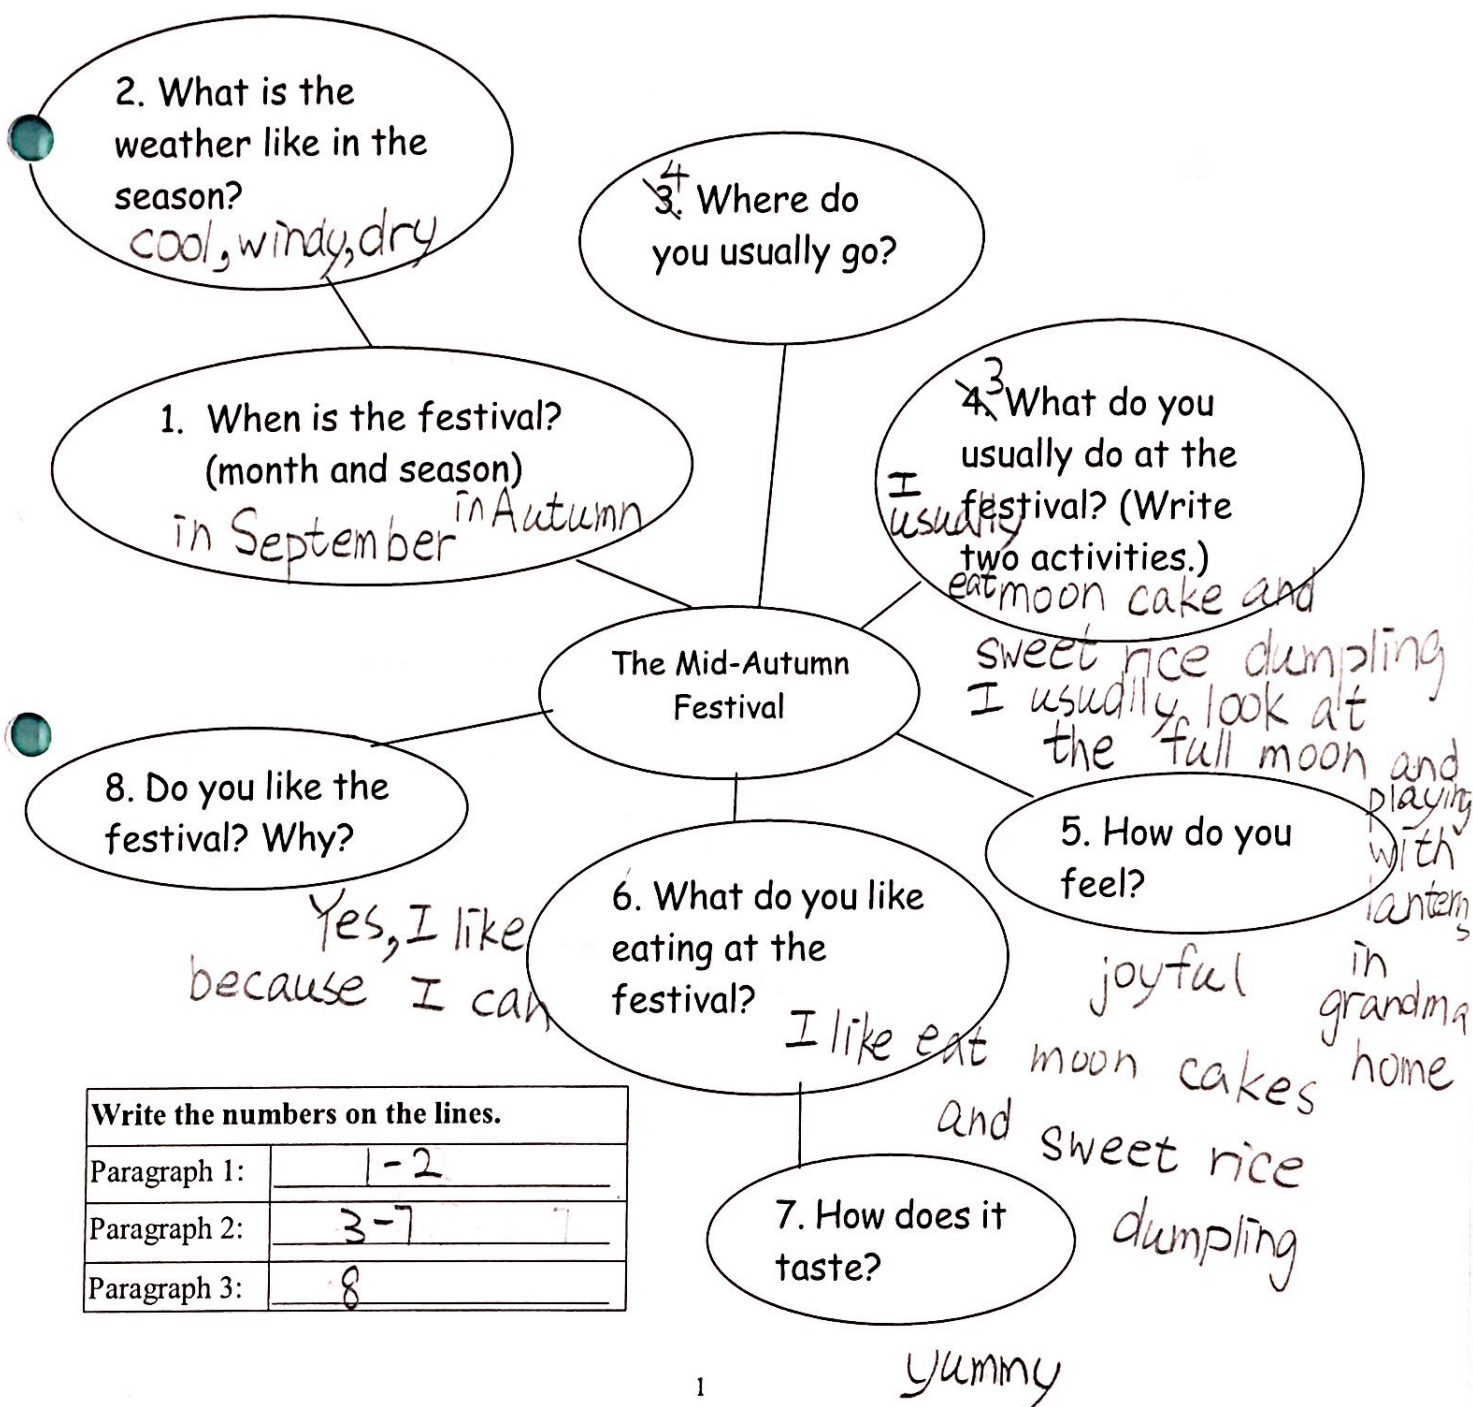 2. What is the
weather like in the
season?
cool, windy, dry
3. 4 Where do
you usually go?
1. When is the festival?
(month and season)
in September in Autumn
4. 3 What do you
usually do at the
festival? (Write
two activities.)
I
usually
eat moon cake and
sweet rice dumpling
I usually look at
the full moon and
playing
with
lanterns
in
grandma
home
The Mid-Autumn
Festival
8. Do you like the
festival? Why?
Yes, I like
because I can
5. How do you
feel?
joyful
6. What do you like
eating at the
festival?
I like eat moon cakes
and sweet rice
dumpling
7. How does it
taste?
yummy
Write the numbers on the lines.
Paragraph 1: 1-2
Paragraph 2: 3-7 7
Paragraph 3: 8
1